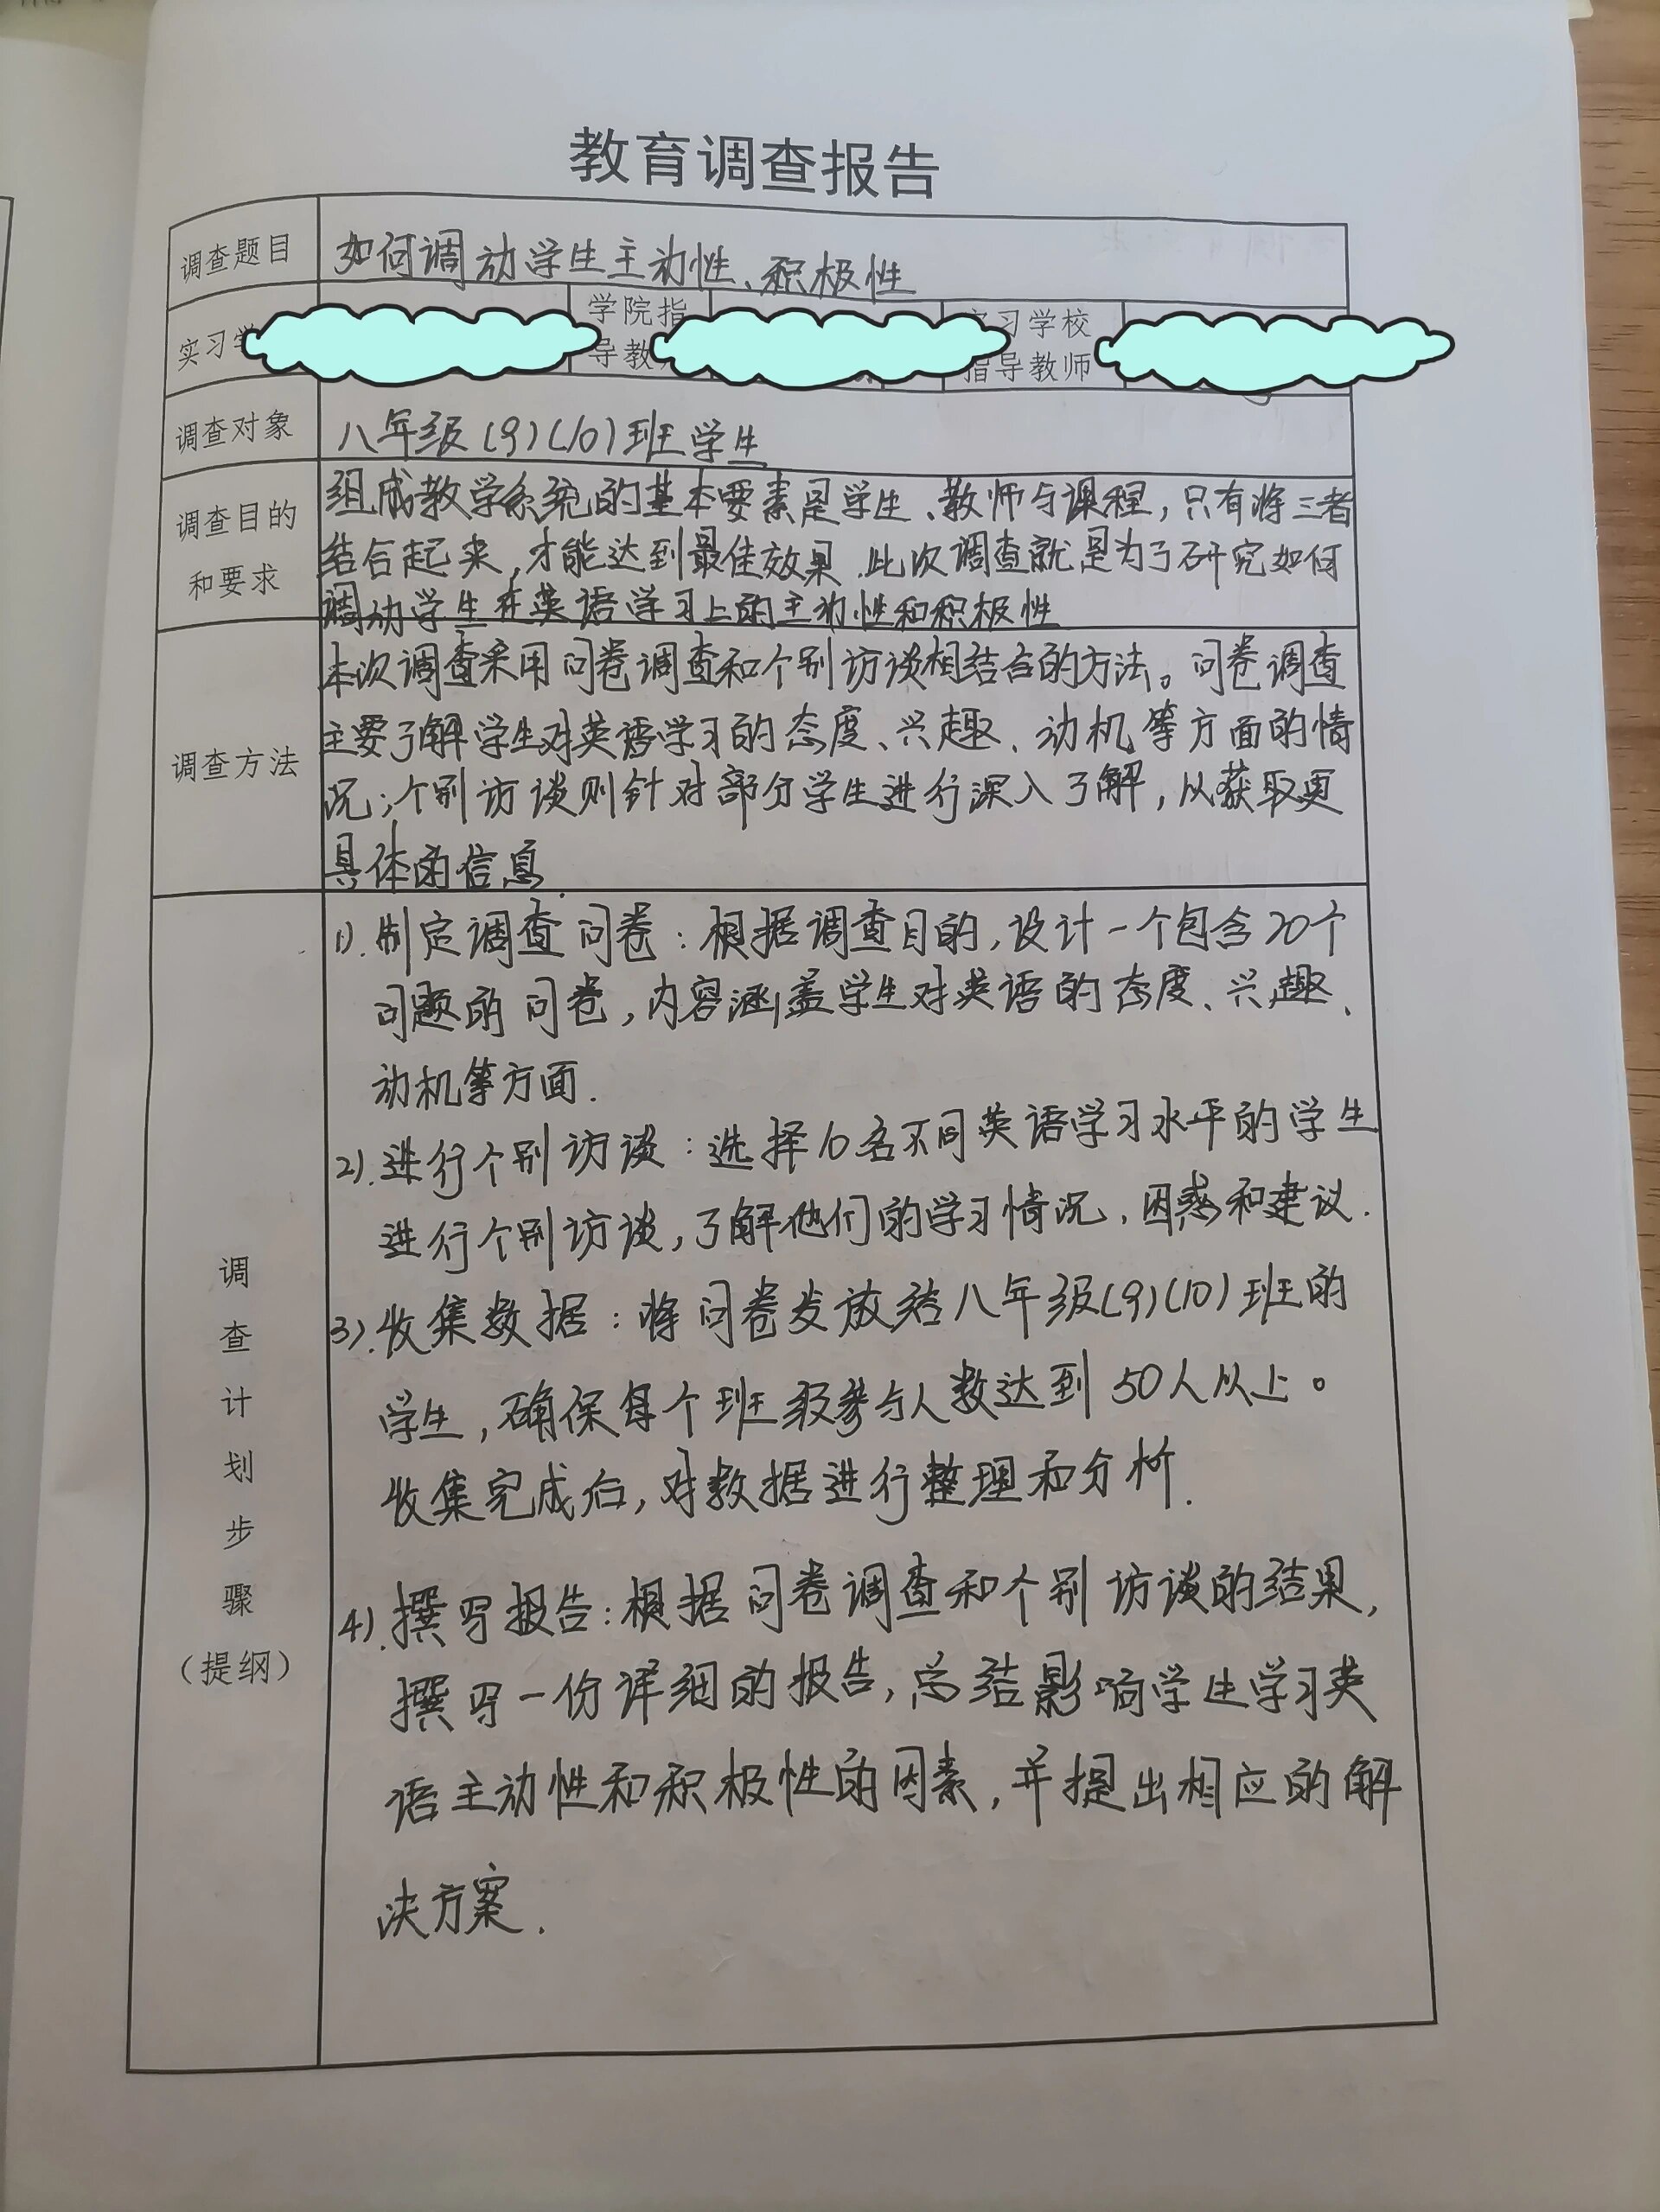 教育调查报告
调查题目
如何调动学生主动性、积极性
实习学
学院指
导教
实习学校
指导教师
调查对象
八年级(9)(10)班学生
调查目的
和要求
组成教学系统的基本要素是学生、教师与课程，只有将三者
结合起来，才能达到最佳效果.此次调查就是为了研究如何
调动学生在英语学习上的主动性和积极性
调查方法
本次调查采用问卷调查和个别访谈相结合的方法。问卷调查
主要了解学生对英语学习的态度、兴趣、动机等方面的情
况；个别访谈则针对部分学生进行深入了解，以获取更
具体的信息.
调
查
计
划
步
骤
（提纲）
1).制定调查问卷：根据调查目的，设计一个包含20个
问题的问卷，内容涵盖学生对英语的态度、兴趣、
动机等方面.
2).进行个别访谈：选择10名不同英语学习水平的学生
进行个别访谈，了解他们的学习情况，困惑和建议.
3).收集数据：将问卷发放给八年级(9)(10)班的
学生，确保每个班级参与人数达到50人以上。
收集完成后，对数据进行整理和分析.
4).撰写报告：根据问卷调查和个别访谈的结果，
撰写一份详细的报告，总结影响学生学习英
语主动性和积极性的因素，并提出相应的解
决方案.